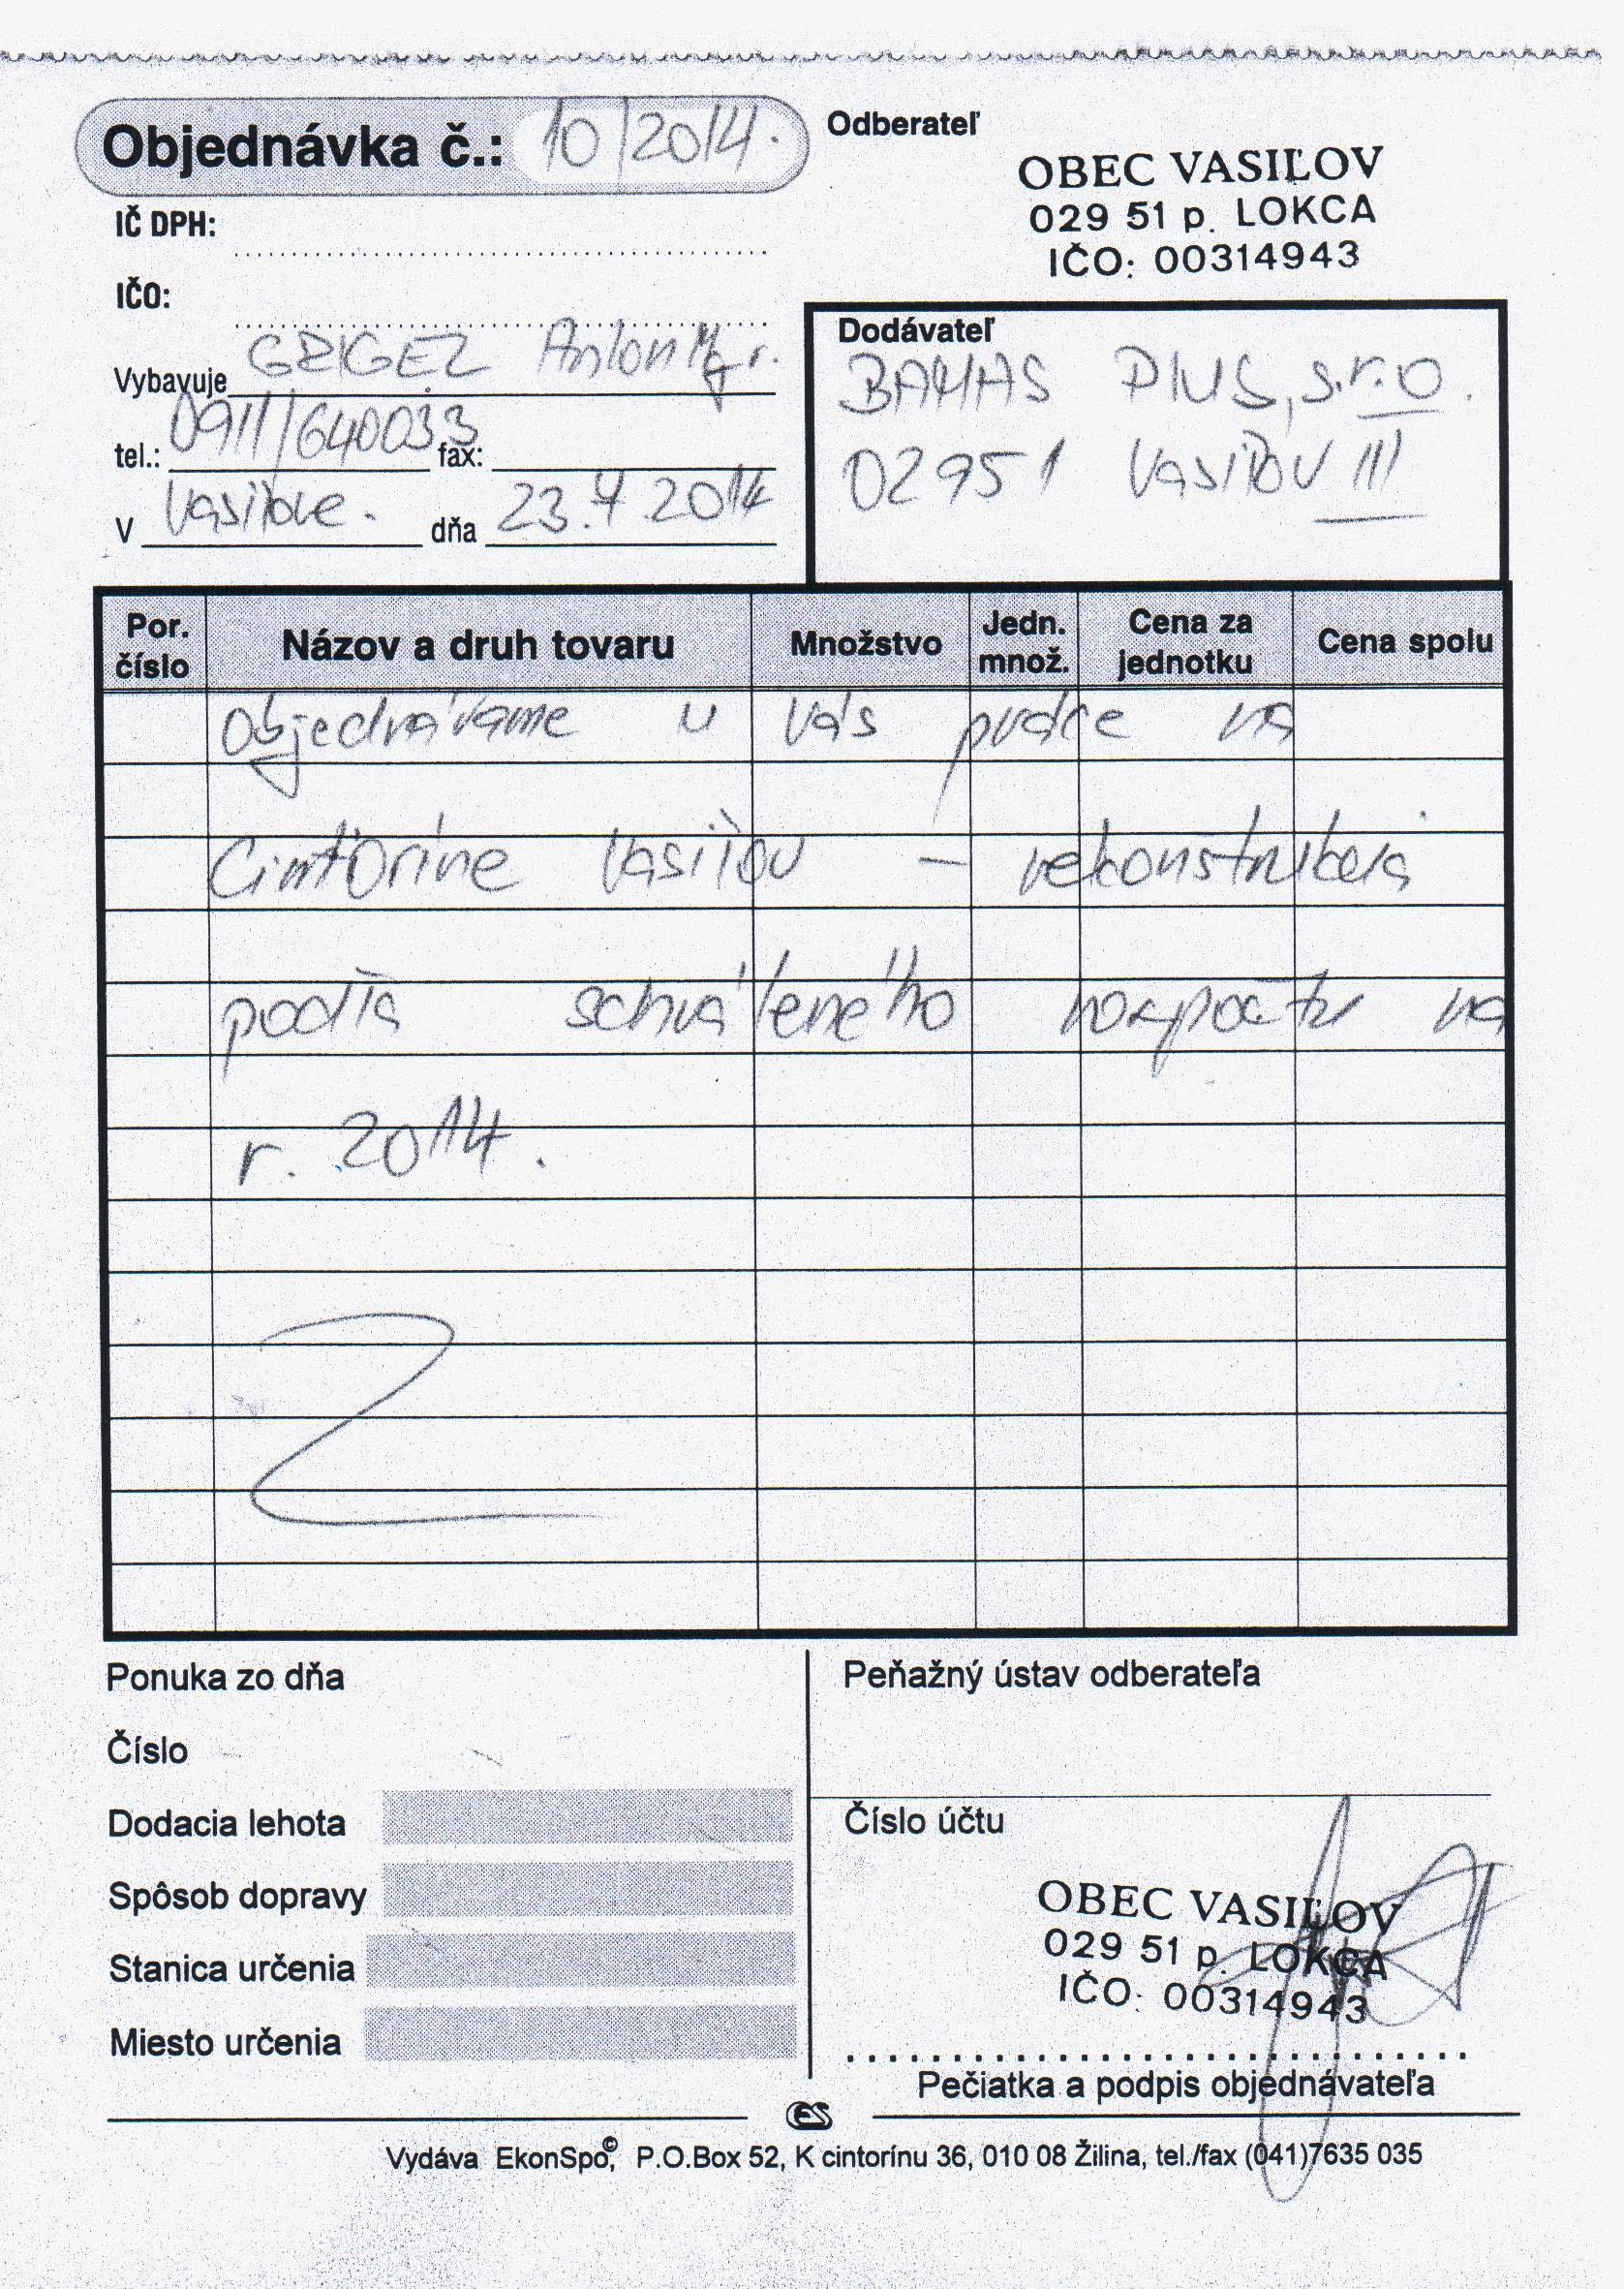 Objednávka č.: 10/2014.
IČ DPH:
IČO:
Vybavuje GRIGEL Anton Mgr.
tel.: 0911/640033 fax:
V Vasiľove. dňa 23.7.2014
Odberateľ
OBEC VASIĽOV
029 51 p. LOKCA
IČO: 00314943
Dodávateľ
BAHAS PLUS, s.r.o.
02951 Vasiľov 111
Por. číslo Názov a druh tovaru Množstvo Jedn. množ. Cena za jednotku Cena spolu
Objednávame u Vás práce na
Cintoríne Vasiľov – rekonštrukcia
podľa schváleného rozpočtu na
r. 2014.
Ponuka zo dňa
Číslo
Dodacia lehota
Spôsob dopravy
Stanica určenia
Miesto určenia
Peňažný ústav odberateľa
Číslo účtu
OBEC VASIĽOV
029 51 p. LOKCA
IČO: 00314943
Pečiatka a podpis objednávateľa
ES
Vydáva EkonSpo©, P.O.Box 52, K cintorínu 36, 010 08 Žilina, tel./fax (041)7635 035